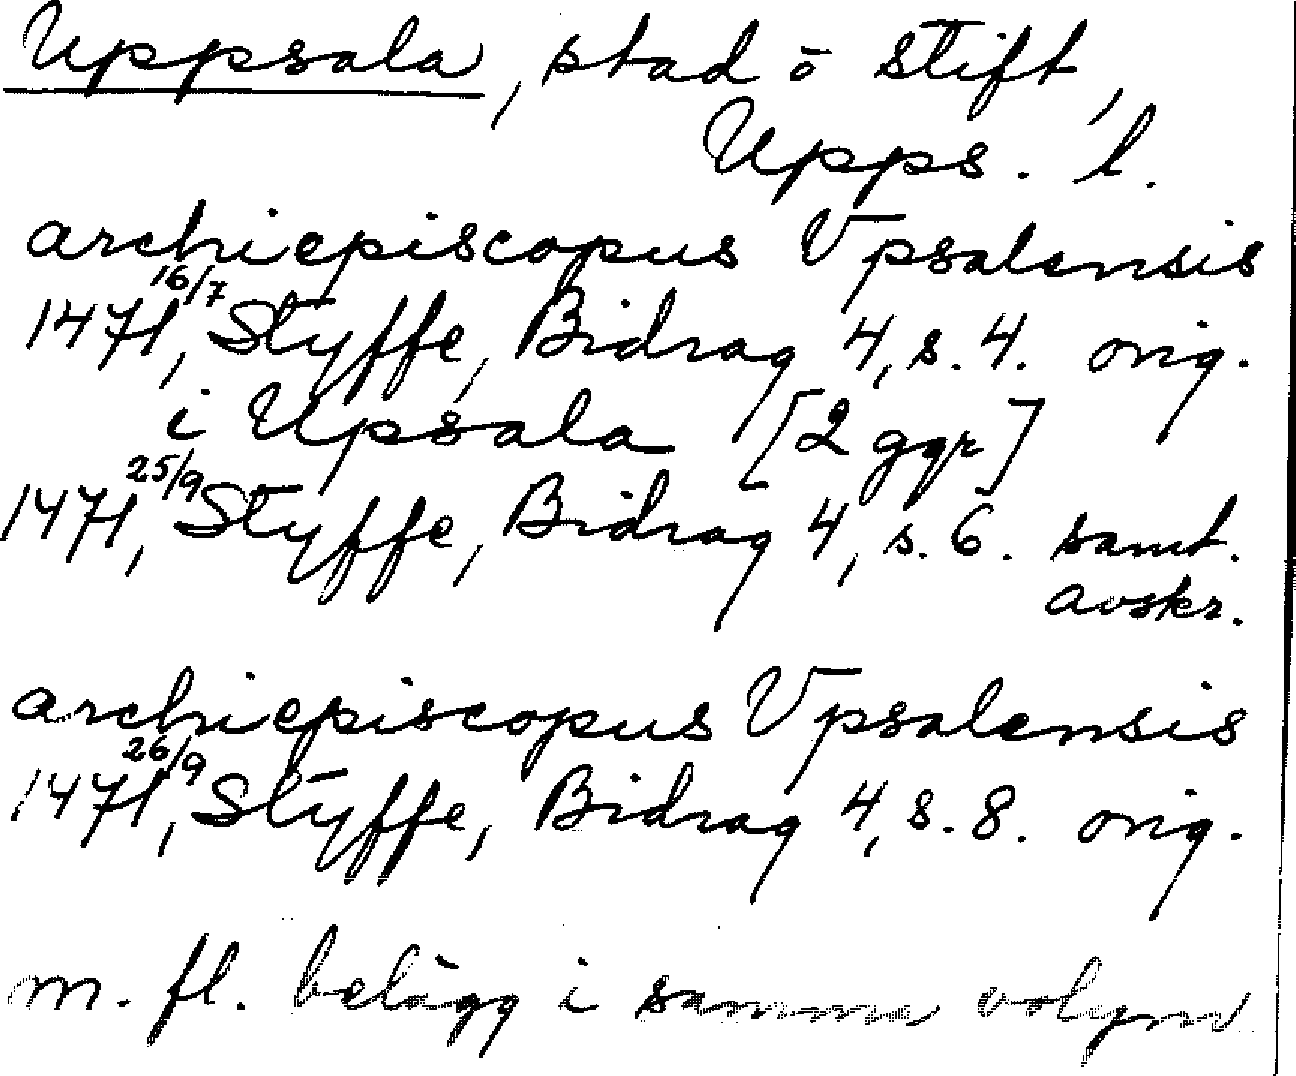 Uppsala, stad o stift,
Upps. l.
archiepiscopus Vpsalensis
1471 16/7, Styffe, Bidrag 4, s. 4. orig.
i Upsala [2 ggr]
1471 25/9, Styffe, Bidrag 4, s. 6. samt.
avskr.
archiepiscopus Vpsalensis
1471 26/9, Styffe, Bidrag 4, s. 8. orig.
m. fl. belägg i samma volym